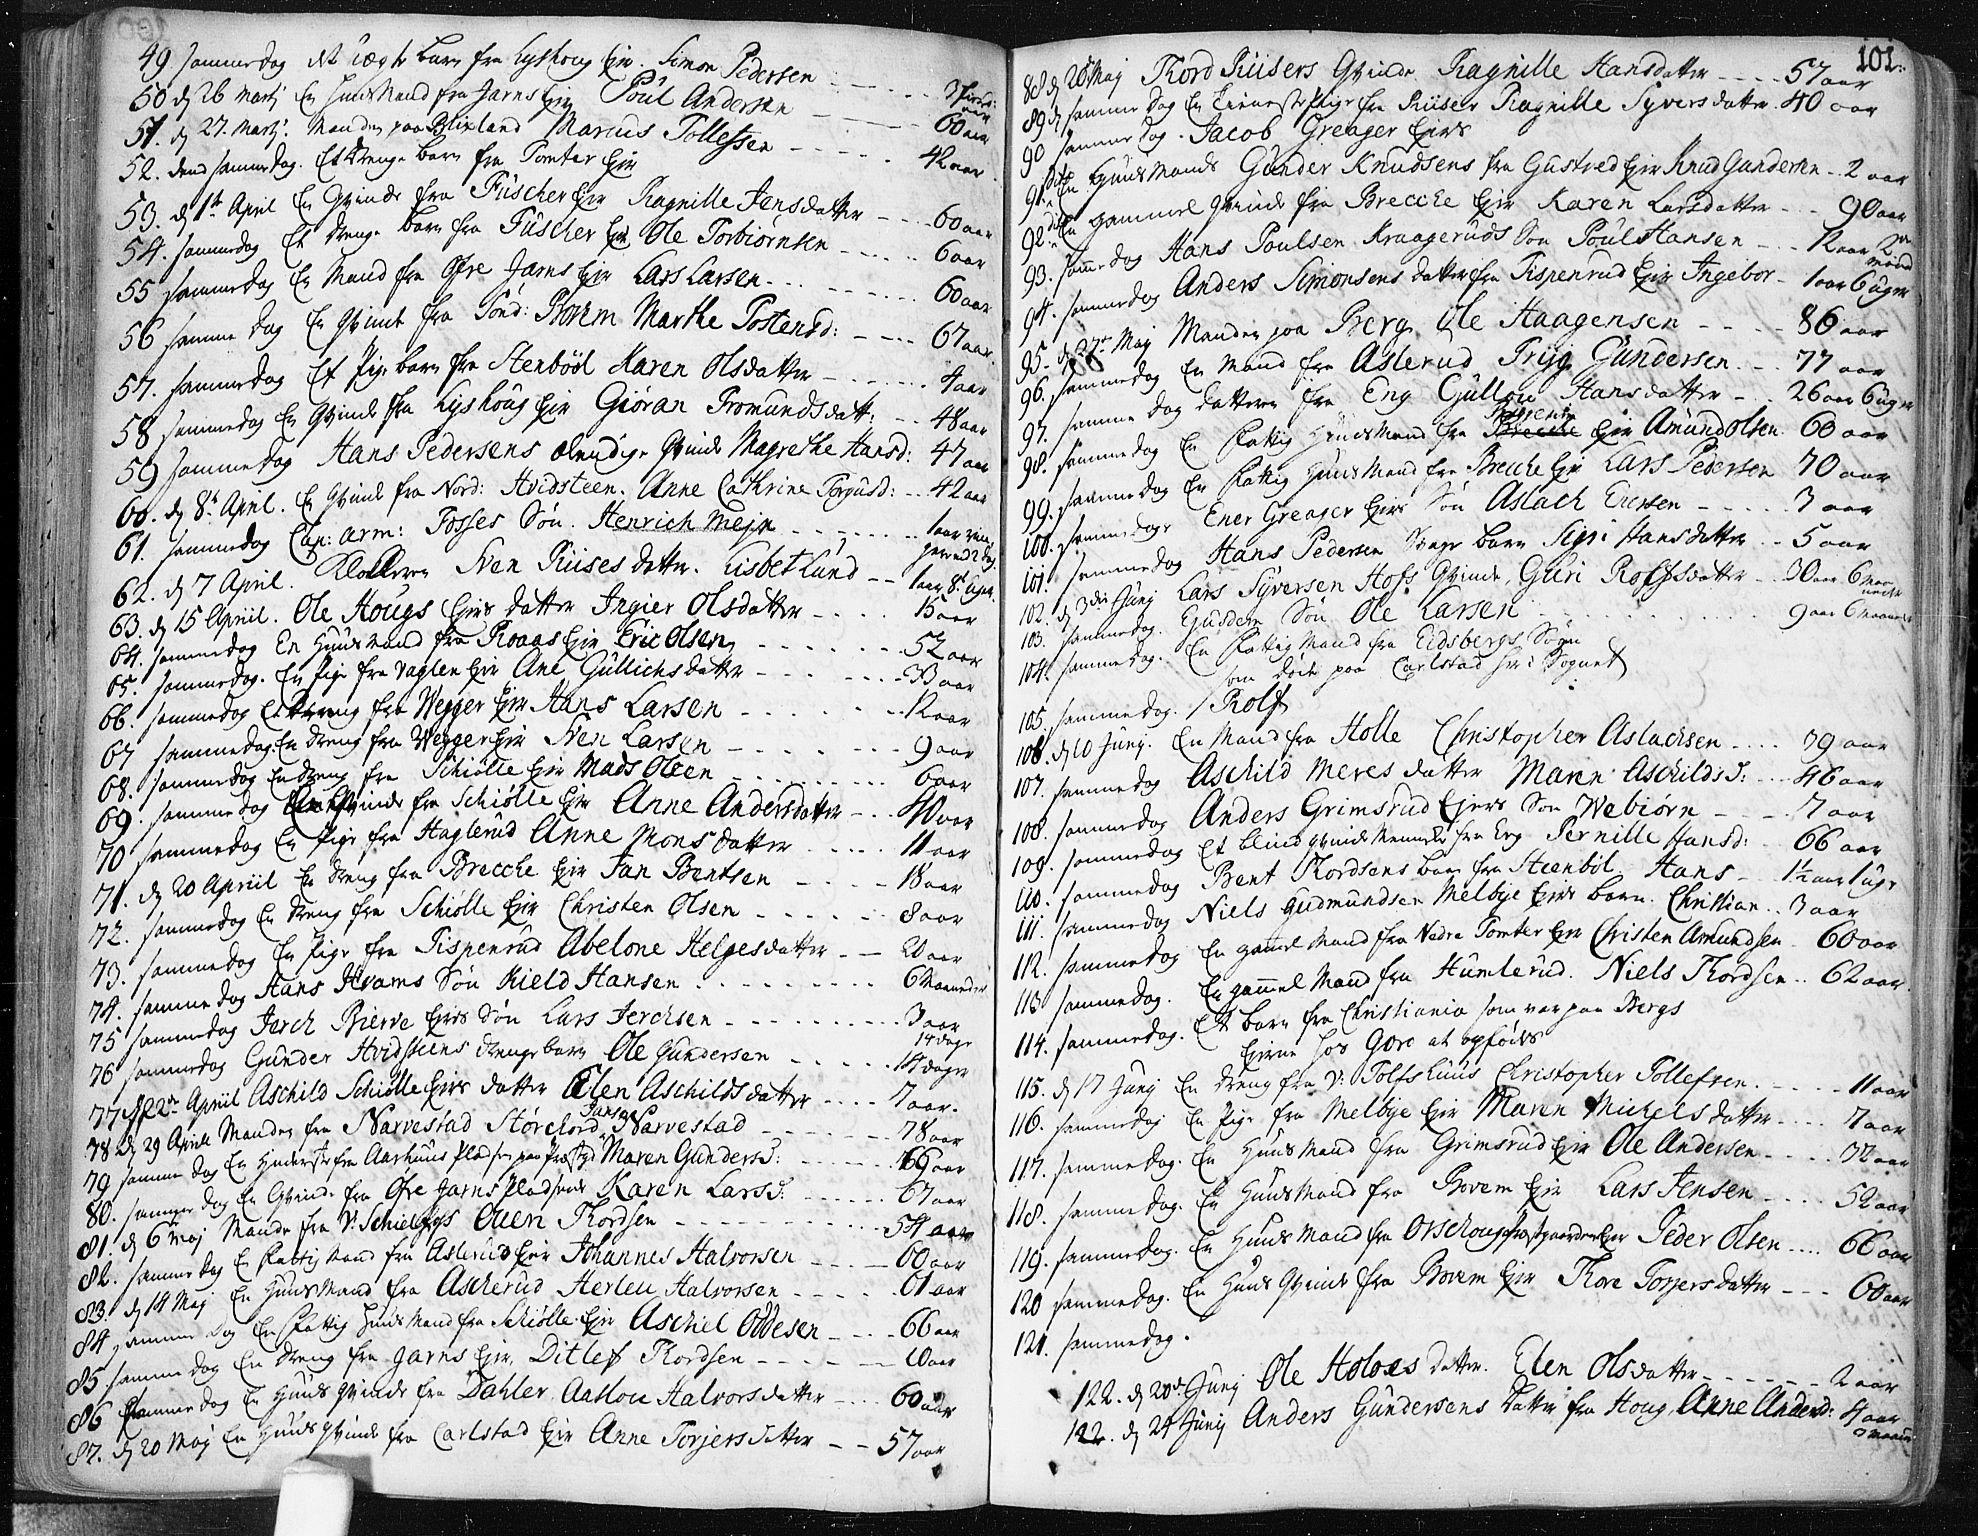 49. sammedag et uægte barn fra Lyshoug Eje. Simon Pedersen
50 d 26 Martj En Huusmand fra Jarns Eje Poul Andersen 60 aar
51. d 27. Martj. Manden paa Blixland Marcus Tollefsen 42 aar
52. dend sammedag. Et Drenge barn fra Tomter Eje
53. d 1te April En Qvinde fra Füscher Eje Ragnille Jensdatter 60 aar
54. sammedag Et drenge barn fra Füscher Eje Ole Torbiørnsen 6 aar
55 sammedag En Mand fra Øfre Jarns Eje Lars Larsen 60 aar
56 samme dag En Qvinde fra Sønd: Bovem Marthe Tostensd: 67 aar.
57. sammedag Et Pige barn fra Stenböel Karen Olsdatter 4 aar
58 sammedag En Qvinde fra Lyshoug Eje Gjøran Tromundsdatt: 48 aar
59 sammedag Hans Pedersens Qvinde Magrethe Hansd: 47 aar
60. d 8de April. En Qvinde fra Nord: Hvidsteen. Anne Cathrine Torgusd: 42 aar
61. sammedag Cap: arm: Fosses Søn. Henrich Mejn
62. d 7 April. Klokkeren Sven Ruises datter. Lisbet Lund 1 aar 8 uger.
63. d 15 April. Ole Hougs Ejers datter Ingier Olsdatter 15 aar
64. sammedag En Huusmand fra Roaas Eje Eric Olsen 52 aar
65. sammedag. En Pige fra Vagten Eje Ane Gullichsdatter 33 aar
66. sammedag Et dreng fra Wegger Eje Hans Larsen 12 aar
67 sammedag En dreng fra Wegger Eje Sven Larsen 9 aar
68. sammedag En dreng fra Schiølle Eje Mads Olsen 6 aar
69. sammedag En Qvinde fra Schiølle Eje Anne Andersdatter 40 aar
70 sammedag En Pige fra Haglerud Anne Monsdatter 11 aar
71. d 20 Apriil En dreng fra Brecche Eje Jan Bentsen 18 aar
72. sammedag En dreng fra Schiølle Eje Christen Olsen 8 aar
73. sammedag En Pige fra Tispenrud Abelone Helgesdatter 20 aar
74. samme dag Hans Hvams Søn Kield Hansen 6 Maaneder
75 sammedag Jerch Bierve Ejers Søn Lars Jerchsen 3 aar 14 dage
76 sammedag Gunder Hvidsteens drengebarn Ole Gundersen 14 dager
77 d 22de April Aschild Schiølle Ejers datter Elen Aschildsdatter 7 aar.
78 d 29 April Manden fra Narvestad Størchord Jansen Narvestad 78 aar
79 samme dag En fra Aarhuus Pladsen paa Præstgd Maren Gundersd: 66 aar
80. samme dag En Qvinde fra Øvre Jarns Pladsende Karen Larsd: 67 aar
81. d 6te Maj Manden fra V: Schielfös Even Thordsen 54 aar
82. samme dag En fattig Mand fra Aslerud Eje Johannes Halvorsen 60 aar
83. d 14 Maj En Huusmand fra Ascherud Herleu Halvorsen 61 aar
84 samme dag En fattig Huusmand fra Schiølle Eje Aschiel Oddesen 66 aar
85 samme dag En dreng fra Jarns Eje. Ditlef Thordsen 10 aar
86 samme dag En Huus Qvinde fra Dahler Aaslou Halvorsdatter 60 aar
87. d 20 Maj En Huus Qvinde fra Carlstad Eje Anne Torjersdatter 57 aar
101.
88 d 20 Maj Thord Ruisers Qvinde Ragnille Hansdatter 57 aar
89 d samme dag En Tieneste Pige fra Ruiser Ragnille Syversdatter. 40 aar
90 samme dag. Jacob Greager Ejers
91. En Huusmands Gunder Knudsens fra Gustved Eje Knud Gundersen 2 aar
92. En gammel Qvinde fra Brecche Eje Karen Larsdatter 90 aar
93. samme dag Hans Poulsen Kraageruds Søn Poul Hansen
94. sammedag Anders Simonsens datter fra Tispenrud Eje Ingebor 1 aar 6 uger
95. d 27de Maj Manden paa Berg Ole Haagensen 86 aar
96. sammedag En Mand fra Aslerud Tryg Gundersen 77 aar
97. samme dag datteren fra Eng Gullou Hansdatter 26 aar 6 uger
98. sammedag En fattig Huusmand fra Eje Amund Olsen. 60 aar
99. sammedag En fattig Huusmand fra Brecche Eje Lars Pedersen 70 aar
100. sammedag Ener Greager Ejers Søn Aslach Enersen 3 aar
101. sammedag Hans Pedersen Pige barn Sigri Hansdatter 5 aar
102. d 3die Junj Lars Syversen Hofs Qvinde, Guri Rolfsdatter 30 aar 6 Maaneder
103. sammedag. Søn Ole Larsen 9 aar 6 Maaneder
104. sammedag. En fattig Mand fra Eidsbergs Sogn
som døde paa Carlstad her i Sognet
105. sammedag. Rolf
106. d 10 Junj. En Mand fra Holle Christopher Aslachsen 39 aar
107. sammedag Aschild Meres datter Maren Aschildsd: 46 aar
108. sammedag Anders Grimsrud Ejers Søn Webiørn 7 aar
109. sammedag Et blind Qvinde Menneske fra Eng Pernille Hansd: 66 aar
110. sammedag Bent Thordsens barn fra Steenböl Hans 1½ aar 1 uge
111. sammedag Niels Gudmundsen Melbye Ejers barn. Christian 3 aar
112. sammedag En gammel Mand fra Nedre Tomter Eje Christen Amundsen 60 aar
113 sammedag. En gammel Mand fra Humlerud. Niels Thordsen 62 aar.
114. sammedag. Et barn fra Christiania som var paa Bergs
Ejerne hos Gore at opfødes
115. d 17 Junj En dreng fra V: Tolfshuus Christopher Tollefsen. 11 aar
116. sammedag En Pige fra Melbye Eje Maren Michelsdatter 7 aar
117. sammedag. En Huusmand fra Grimsrud Eje Ole Andersen 72 aar
118. sammedag. En Huusmand fra Bovem Eje Lars Jensen 52 aar
119. sammedag. En Huusmand fra Orschoug Præstgaardens Eje Peder Olsen 66 aar
120 sammedag. En Huus Qvinde fra Bovem Eje Thore Torjersdatter 60 aar
121. sammedag.
122. d 20de Junj Ole Holoes datter. Elen Olsdatter 2 aar
122. d 24 Junij Anders Gundersens Datter fra Houg, Anne Andersd: 4 aar